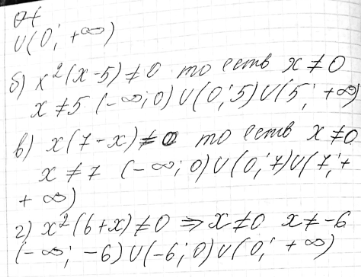 ∪(0; +∞)
б) x²(x-5)≠0 то есть x≠0
x≠5 (-∞;0)∪(0;5)∪(5; +∞)
в) x(7-x)≠0 то есть x≠0
x≠7 (-∞;0)∪(0;7)∪(7;+
+∞)
г) x²(6+x)≠0 ⇒ x≠0 x≠-6
(-∞; -6)∪(-6;0)∪(0; +∞)